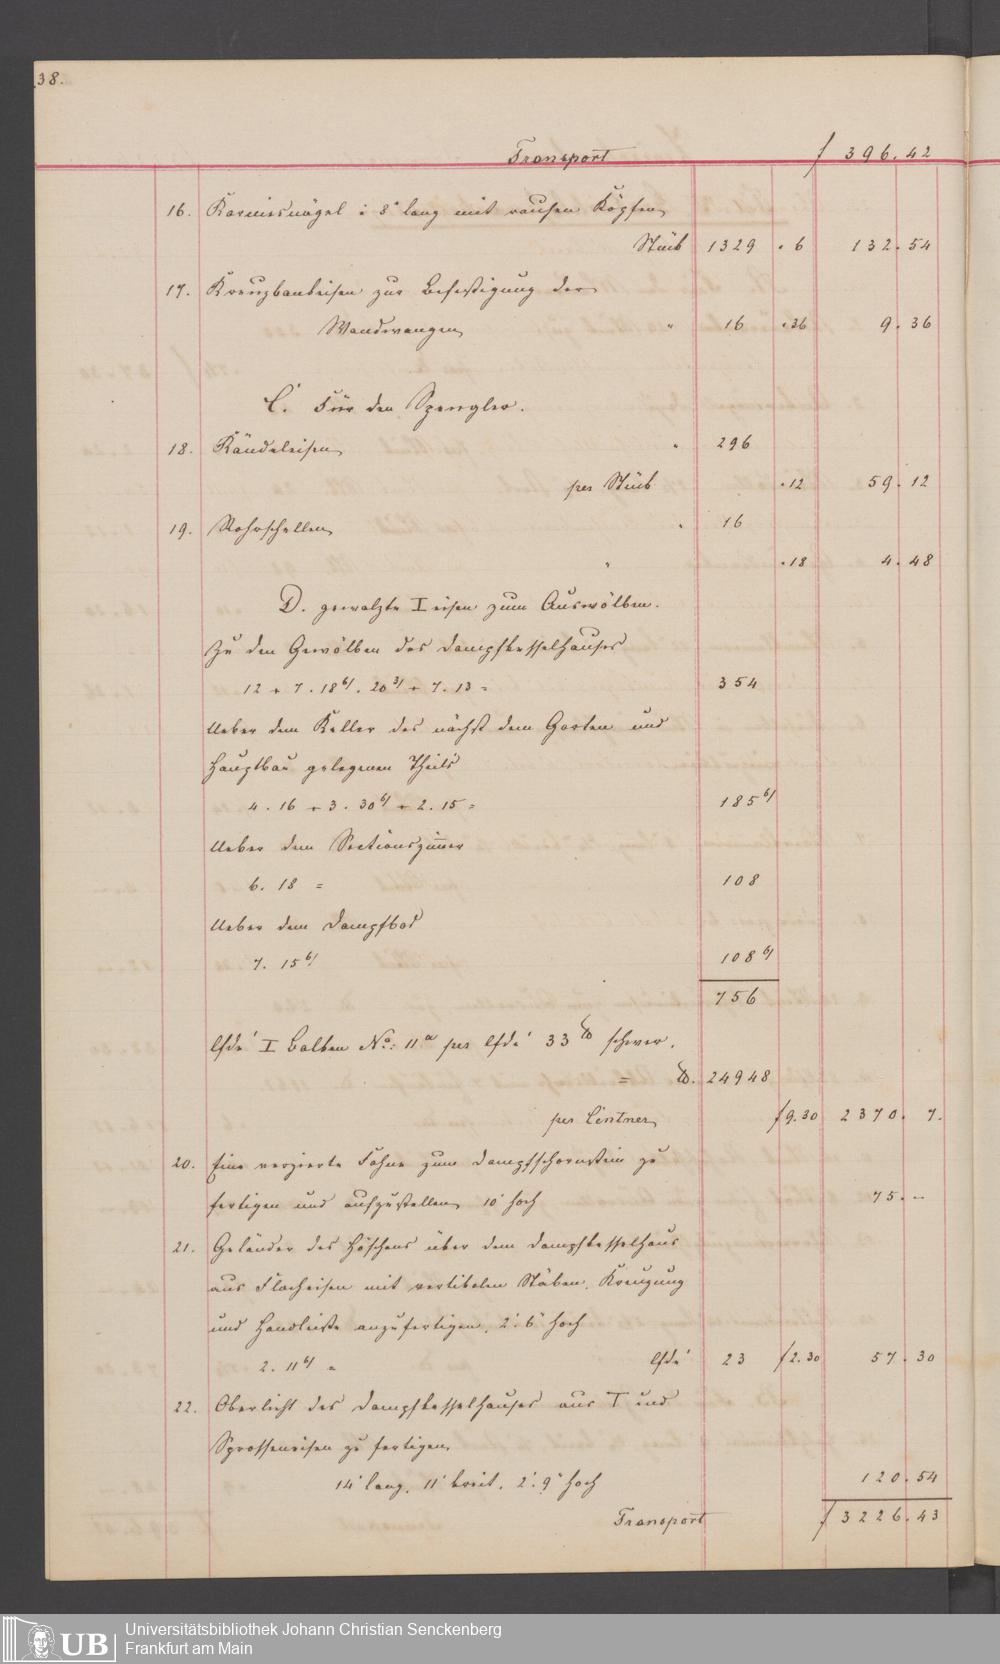 38.
Transport f 396. 42
16. Karniesnägel à 8" lang mit rauhen Köpfen
Stück 1329 . 6 132. 54
17. Kreuzbandeisen zur Befestigung der
Wandwangen " 16 . 36 9. 36
C. Für den Spengler.
18. Kändeleisen " 296
per Stück . 12 59. 12
19. Rohrschellen " 16
" . 18 4. 48
D. gewalzte I eisen zum Auswölben.
Zu den Gewölben des Dampfkesselhauses
12 + 7. 18 6/. 20 3/ + 7. 13 = 354
Ueber dem Keller des nächst dem Garten und
Hauptbau gelegenen Theils
4. 16 + 3. 30 6/ + 2. 15 = 185 6/
Ueber dem Sectionszimmer
6. 18 = 108
Ueber dem Dampfbad
7. 15 6/ 108 6/
756
lfde' I Balken No: 11a per lfde' 33 ℔ schwer.
= ℔. 24948
per Centner f 9.30 2370. 7.
20. Eine verzierte Fahne zum Dampfschornstein zu
fertigen und aufzustellen 10' hoch 75. -
21. Geländer des Höfchens über dem Dampfkesselhaus
aus Flacheisen mit vertikalen Stäben, Kreuzung
und Handleiste anzufertigen, 2'. 6" hoch
2. 11 6/ = lfde' 23 f 2. 30 57. 30
22. Oberlicht des Dampfkesselhauses aus T und
Sprosseneisen zu fertigen
14' lang, 11' breit, 2'. 9" hoch 120. 54
Transport f 3226. 43
UB Universitätsbibliothek Johann Christian Senckenberg
Frankfurt am Main